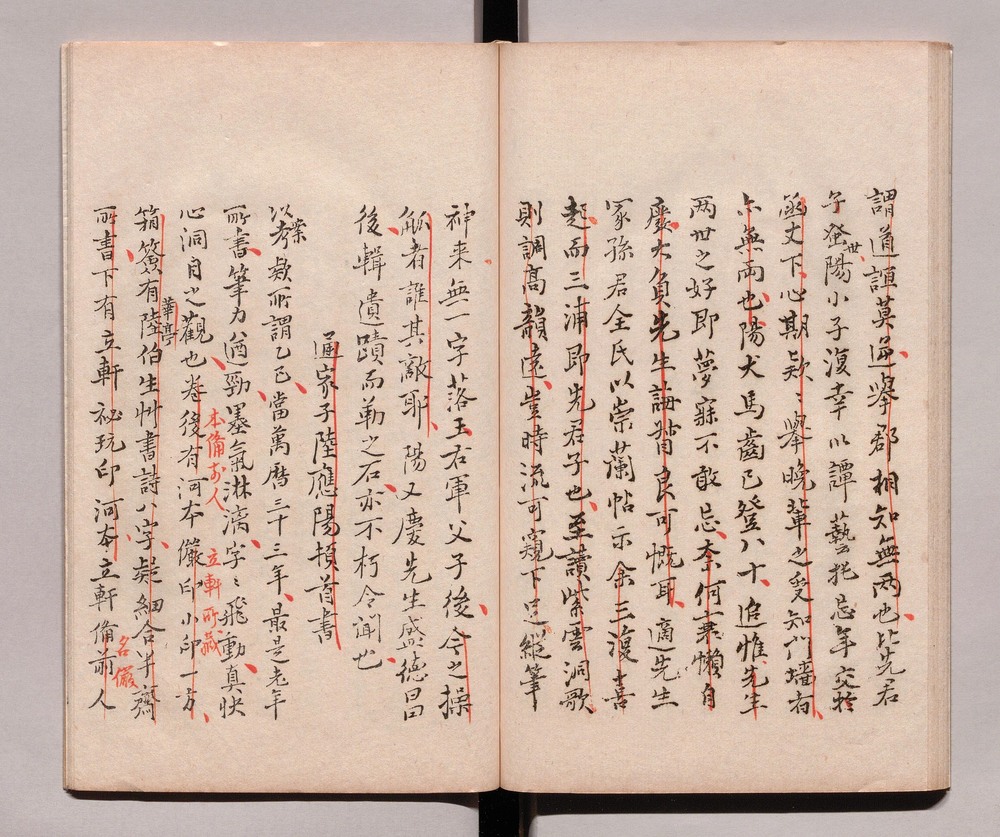 謂道誼莫逆举郡相知無兩也比先君
子登世陽小子復幸以譚藝托忘年交於
函丈下心期欵〻舉晚輩之受知门墙者
亦無兩也陽犬馬齒已登八十追惟先生
两世之好即夢寐不敢忘奈何耄懶自
廢大負先生誨督良可慨耳適先生
冢孫君全氏以崇蘭帖示余三復喜
起而三浦即先君子也至讀紫雲洞歌
則調高韻遠豈時流可窺下逞縱筆
神来無一字落王右軍父子後今之操
觚者誰其敵耶陽又慶先生盛德曰
後輯遺蹟而勒之石亦不朽令聞也
通家子陸應陽頓首書
以案考欵所謂乙巳當萬曆三十三年最是老年
所書筆力遒勁墨氣淋漓字〻飛動真快
心洞目之觀也卷後有河本儼印小印一方
本備前人
立軒所藏
箱簽有華亭陸伯生艸書詩八字疑細合半齋
所書下有立軒祕玩印河本立軒備前人
名儼